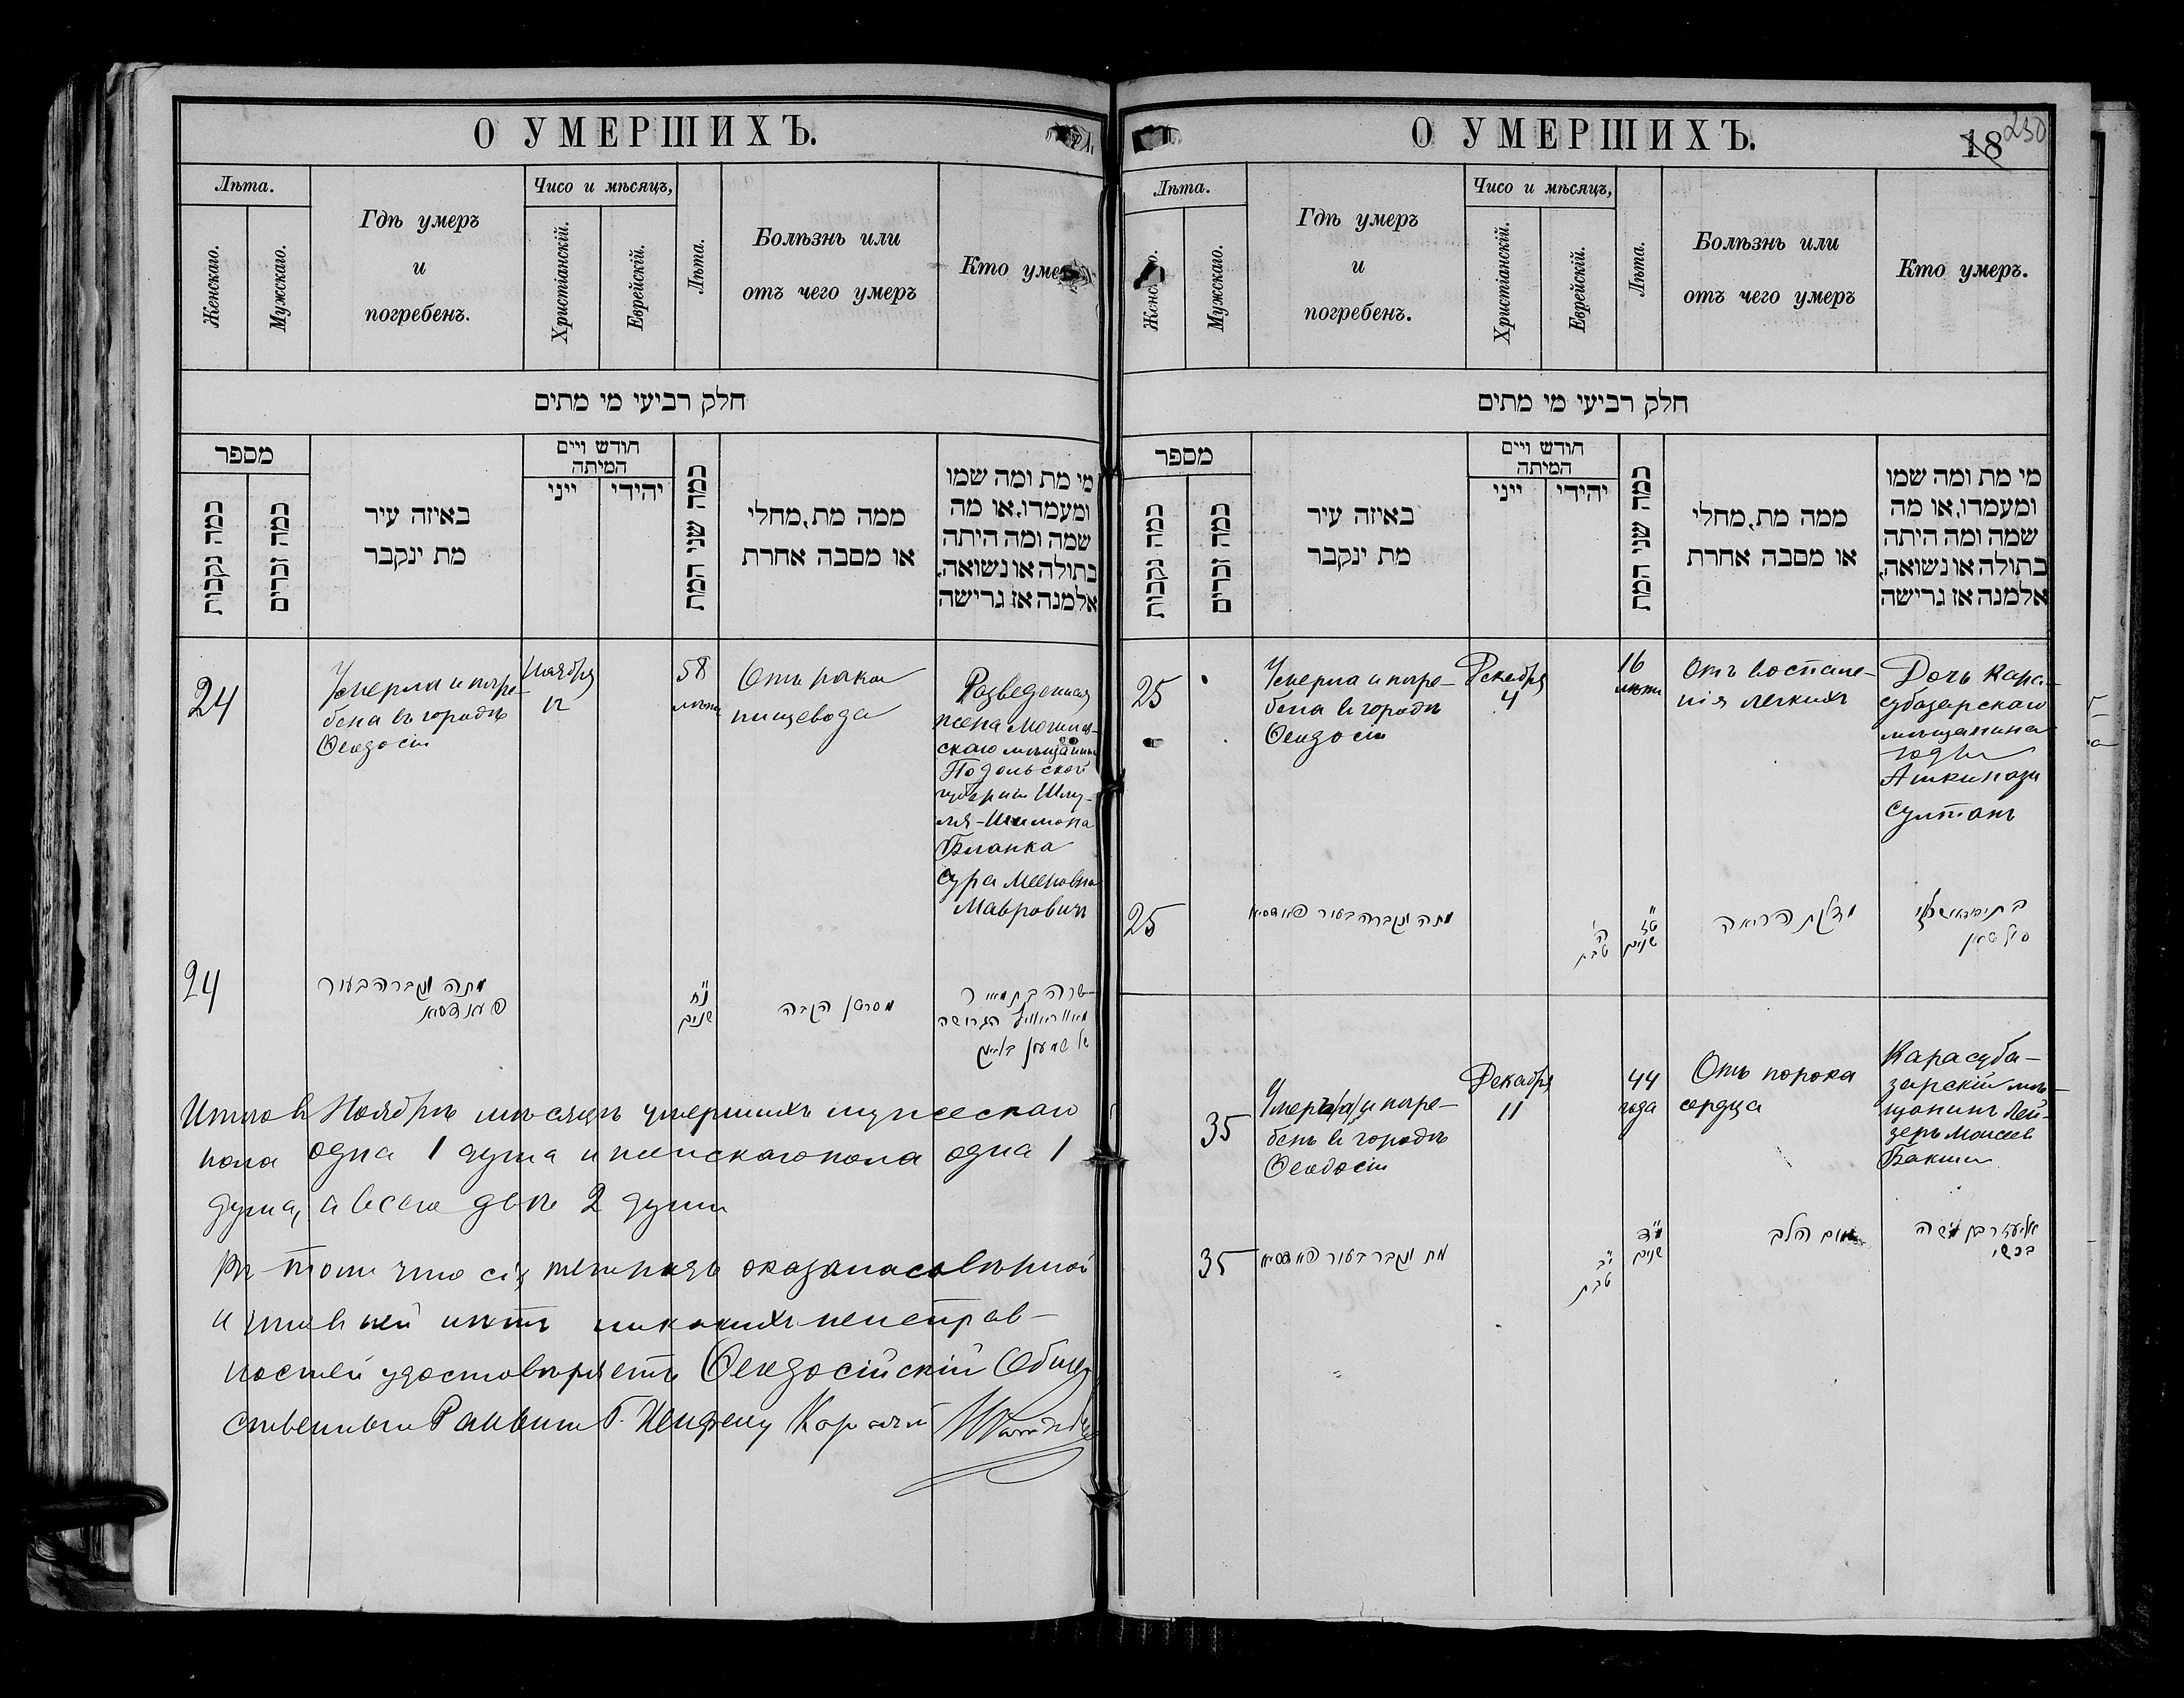 О УМЕРШИХЪ.
Лѣта.
Женскаго.
Мужскаго.
Гдѣ умеръ
и
погребенъ.
Чисо и мѣсяцъ,
Христіанскій.
Еврейскій.
Лѣта.
Болѣзнь или
отъ чего умеръ
Кто уме
חלק רביעי מי מתים
מספר
כמה נקבות
כמה זכרים
באיזה עיר
מת ינקבר
חודש ויים
המיתה
ייני
יהידי
כמה שני המת
ממה מת, מחלי
או מסבה אחרת
מי מת ומה שמו
ומעמדו, או מה
שמה ומה היתה
בתולה או נשואה,
אלמנה אז גרישה
24
Умерла и погре-
бена въ городѣ
Ѳеодосіи
Ноября
12
58
лѣтъ
Отъ рака
пищевода
Разведенная
жена Могилев-
скаго мѣщанина
Подольской
губерніи Шму-
ля-Шимона
Бланка
Сура Меировна
Мавровичъ
24
מתה ונקברה בעיר
פעאדסיא
נ״ח
שנים
מסרטן הקבה
שרה בת מאיר
מאווראוויץ הגרושה
של שמעון בלאנק
Итого въ Ноябрѣ мѣсяцѣ умершихъ мужескаго
пола одна 1 душа и женскаго пола одна 1
душа, а всего двѣ 2 души
Въ томъ что сія тетрадь оказалась вѣрной
и что въ ней нѣтъ никакихъ неисправ-
ностей удостовѣряетъ Ѳеодосійскій Обще-
ственный Раввинъ
О УМЕРШИХЪ.
18 230
Лѣта.
Женс о.
Мужскаго.
Гдѣ умеръ
и
погребенъ.
Чисо и мѣсяцъ,
Христіанскій.
Еврейскій.
Лѣта.
Болѣзнь или
отъ чего умеръ
Кто умеръ.
חלק רביעי מי מתים
מספר
כמה נקבות
כמה זכרים
באיזה עיר
מת ינקבר
חודש ויים
המיתה
ייני
יהידי
כמה שני המת
ממה מת, מחלי
או מסבה אחרת
מי מת ומה שמו
ומעמדו, או מה
שמה ומה היתה
בתולה או נשואה,
אלמנה אז גרישה
25
Умерла и погре-
бена въ городѣ
Ѳеодосіи
Декабря
4
16
лѣтъ
Отъ воспале-
нія легкихъ
Дочь Кара-
субазарскаго
мѣщанина
Ашкинази
Султанъ
25
מתה ונקברה בעיר פעאדסיא
ה׳
טבת
ט״ז
שנים
דלקת הריאה
סולטאן
35
Умеръ и погре-
бенъ въ городѣ
Ѳеодосіи
Декабря
11
44
года
Отъ порока
сердца
Карасуба-
зарскій мѣ-
щанинъ Лей-
зеръ Моисеев
Бакши
35
מת ונקבר בעיר פעאדסיא
י״ב
טבת
מ״ד
שנים
מום הלב
אליעזר בן משה
בכשי